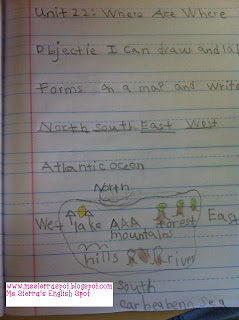 Unit 22: Where Are Where
Objectie I can draw and lal
Forms on a map and write
North south East West
Atlantic ocean
North
West lake forest Eas
mountains
hills river
South
Carheabenn sea
www.mssierraspot.blogspot.com
Ms Sierra's English Spot